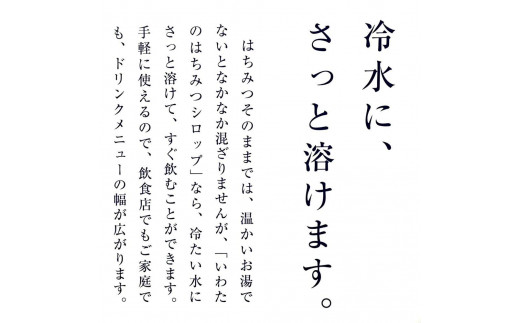 冷水に、
さっと溶けます。
はちみつそのままでは、温かいお湯で
ないとなかなか混ざりませんが、「いわた
のはちみつシロップ」なら、冷たい水に
さっと溶けて、すぐ飲むことができます。
手軽に使えるので、飲食店でもご家庭で
も、ドリンクメニューの幅が広がります。